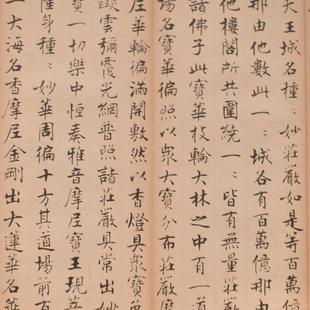 大天王城名種〻妙莊嚴如是等百萬
那由他數此一〻城各有百萬億那由
他樓閣所共圍繞一〻皆有無量莊嚴
諸佛子此寶華枝輪大林之中有一道
場名寶華徧照以衆大寶分布莊嚴摩
尼華輪徧滿開敷然以香燈具衆寶
焰雲彌覆光網普照諸莊嚴具常出妙
寶一切樂中恒奏雅音摩尼寶王現菩
薩身種〻妙華周徧十方其道場前有
一大海名香摩尼金剛出大蓮華名華